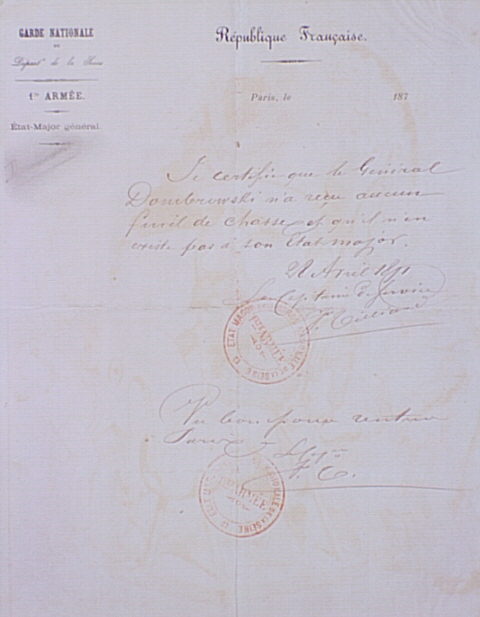 GARDE NATIONALE
DU
Départ. de la Seine
1re ARMÉE.
État-Major général.
République Française.
Paris, le 187
Je certifie que le Général
Dombrowski n'a reçu aucun
fusil de chasse et qu'il n'en
existe pas à son État major.
22 Avril 1871
Le Capitaine de Service
ÉTAT MAJOR DE LA SEINE
Vu bon pour rentrer
Paris
DE LA SEINE